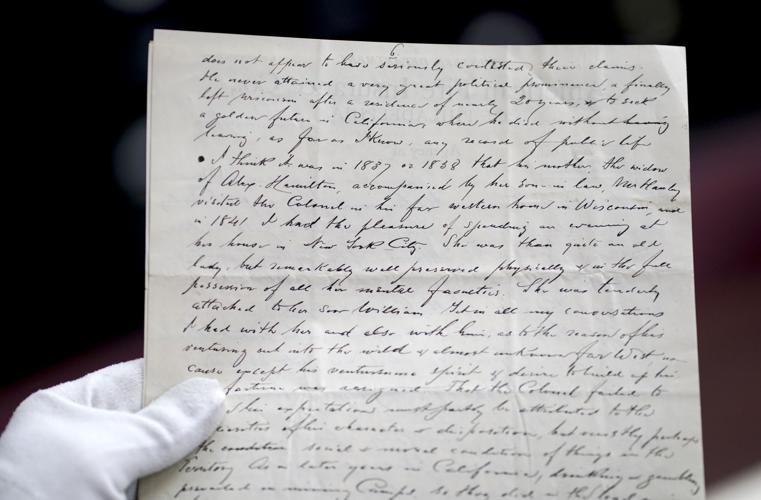 6
does not appear to have seriously contested their claims.
He never attained a very great political prominence & finally
left Wisconsin after a residence of nearly 20 years, to seek
a golden future in California, where he died without having
leaving, as far as I know, any record of public life
I think it was in 1837 or 1838 that his mother, the widow
of Alex. Hamilton, accompanied by her son-in law, Mr
visited the Colonel in his far western home in Wisconsin, and
in 1841 I had the pleasure of spending an evening at
her house in New York City. She was than quite an old
lady, but remarkably well preserved physically & in the full
possession of all her mental faculties. She was tenderly
attached to her son William. Yet in all my conversations
I had with her and also with him, as to the reason of his
venturing out into the wild & almost unknown far West no
cause except his venturesome spirit & desire to build up his
fortune was assigned. That the Colonel failed to
his expectations must partly be attributed to the
of his character & disposition, but mostly perhaps
the condition social & moral condition of things in the
Territory. As in later years in California, drinking & gambling
prevailed in mining Camps, so they did in the lead